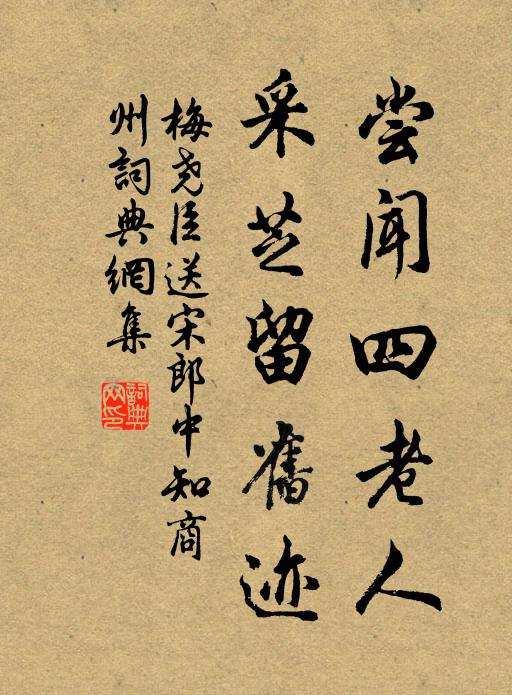 尝闻四老人
采芝留舊迹
梅尧臣送宋郎中知商
州詞典網集
詞典
网印